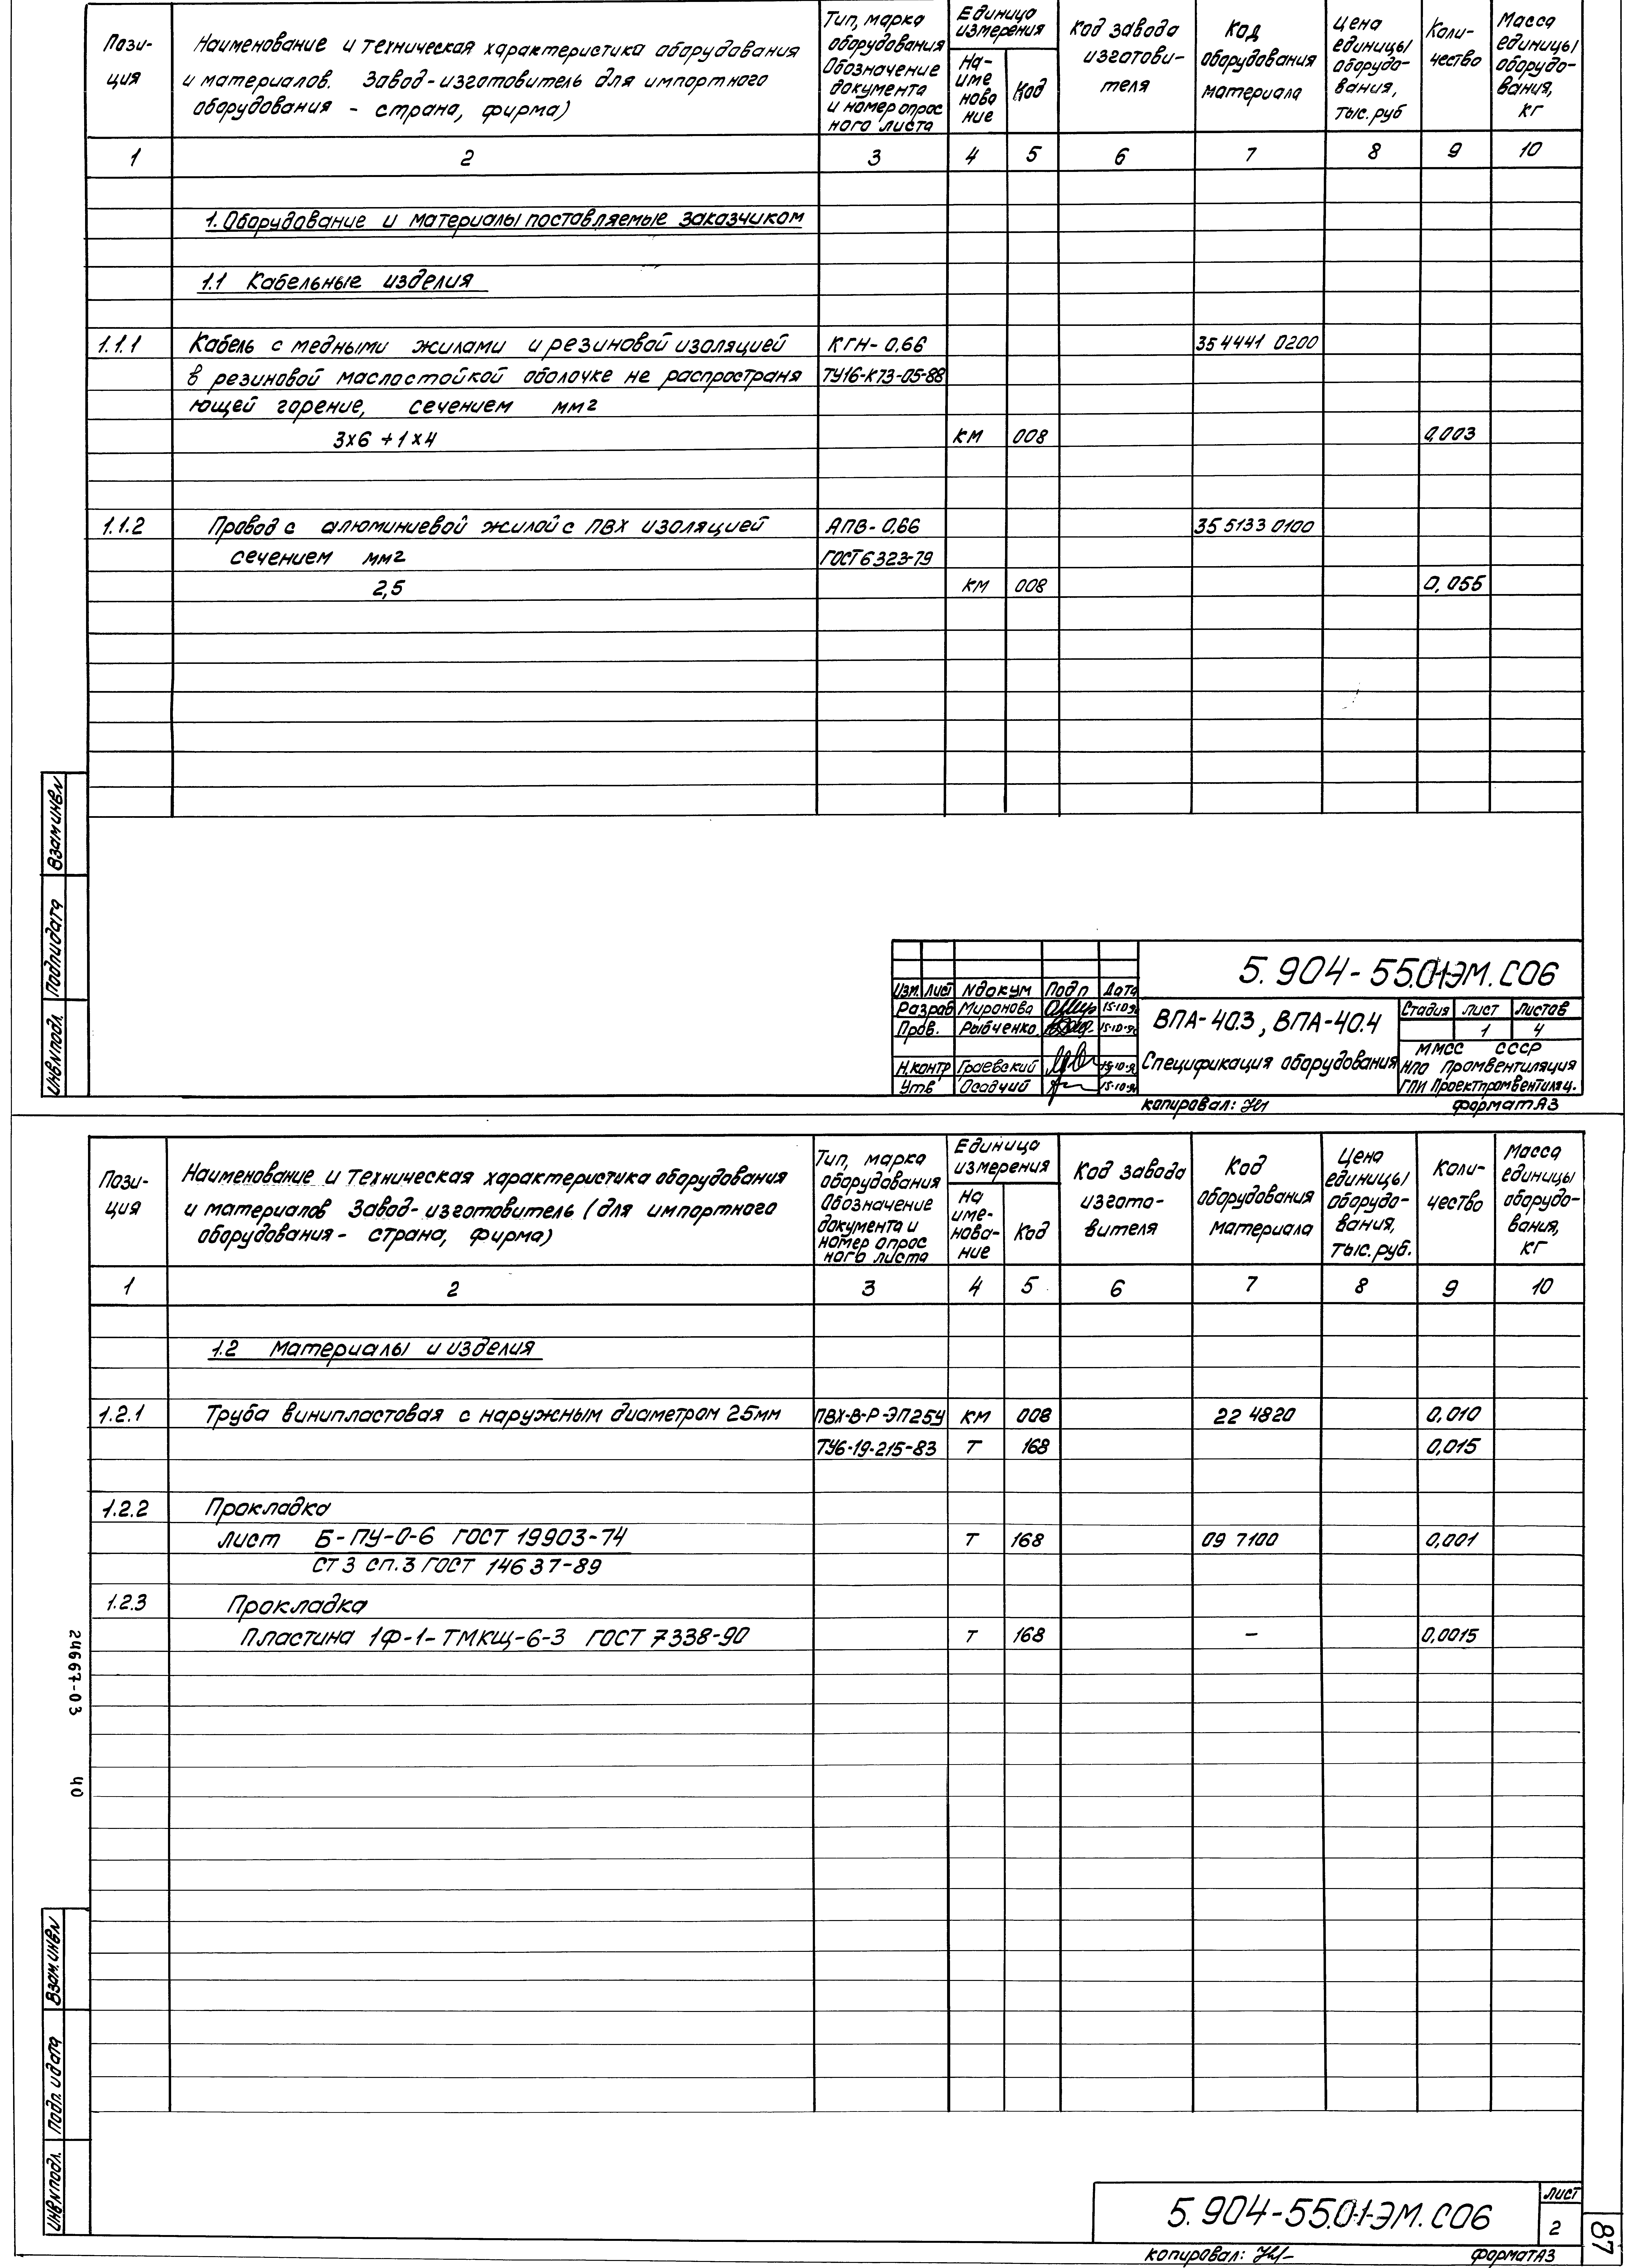 Пози-
ция
Наименование и техническая характеристика оборудования
и материалов. Завод-изготовитель для импортного
оборудования - страна, фирма)
Тип, марка
оборудования
Обозначение
документа
и номер опрос
ного листа
Единица
измерения
На-
име
нова
ние
Код
Код завода
изготови-
теля
Код
оборудования
материала
Цена
единицы
оборудо-
вания,
тыс. руб
Коли-
чество
Масса
единицы
оборудо-
вания,
кг
1 2 3 4 5 6 7 8 9 10
1. Оборудование и материалы поставляемые заказчиком
1.1 Кабельные изделия
1.1.1 Кабель с медными жилами и резиновой изоляцией КГН-0,66 35 4441 0200
в резиновой маслостойкой оболочке не распростаня ТУ16-К73-05-88
ющей горение, сечением мм2
3х6 + 1х4 км 008 0,003
1.1.2 Провод с алюминиевой жилой с ПВХ изоляцией АПВ-0,66 35 5133 0100
сечением мм2 ГОСТ 6323-79
2,5 км 008 0,055
Взам инв N
Подп и дата
Инв N подл
5.904-55.01-ЭМ.СО6
Изм. Лист N докум Подп Дата
Разраб Миронова 15.10.9
Пров. Рыбченко 15.10.9
Н.контр Граевский 15.10.9
Утв Осадчий 15.10.9
ВПА-40.3, ВПА-40.4
Спецификация оборудования
Стадия Лист Листов
1 4
ММСС СССР
НПО Промвентиляция
ГПИ Проектпромвентиляц.
копировал:
формат А3
Пози-
ция
Наименование и техническая характеристика оборудования
и материалов Завод-изготовитель (для импортного
оборудования - страна, фирма)
Тип, марка
оборудования
Обозначение
документа и
номер опрос
ного листа
Единица
измерения
На
име-
нова-
ние
Код
Код завода
изгото-
вителя
Код
оборудования
материала
Цена
единицы
оборудо-
вания,
тыс. руб.
Коли-
чество
Масса
единицы
оборудо-
вания,
кг
1 2 3 4 5 6 7 8 9 10
1.2 Материалы и изделия
1.2.1 Труба винипластовая с наружным диаметром 25мм ПВХ-В-Р-ЭП25У км 008 22 4820 0,010
ТУ6-19-215-83 т 168 0,015
1.2.2 Прокладка
лист Б-ПУ-0-6 ГОСТ 19903-74 т 168 09 7100 0,001
СТ 3 сп.3 ГОСТ 14637-89
1.2.3 Прокладка
Пластина 1Ф-1-ТМКЩ-6-3 ГОСТ 7338-90 т 168 — 0,0015
24667-03 40
Взам. инв N
Подп. и дата
Инв N подл.
5.904-55.01-ЭМ.СО6
Лист
2
87
копировал:
формат А3